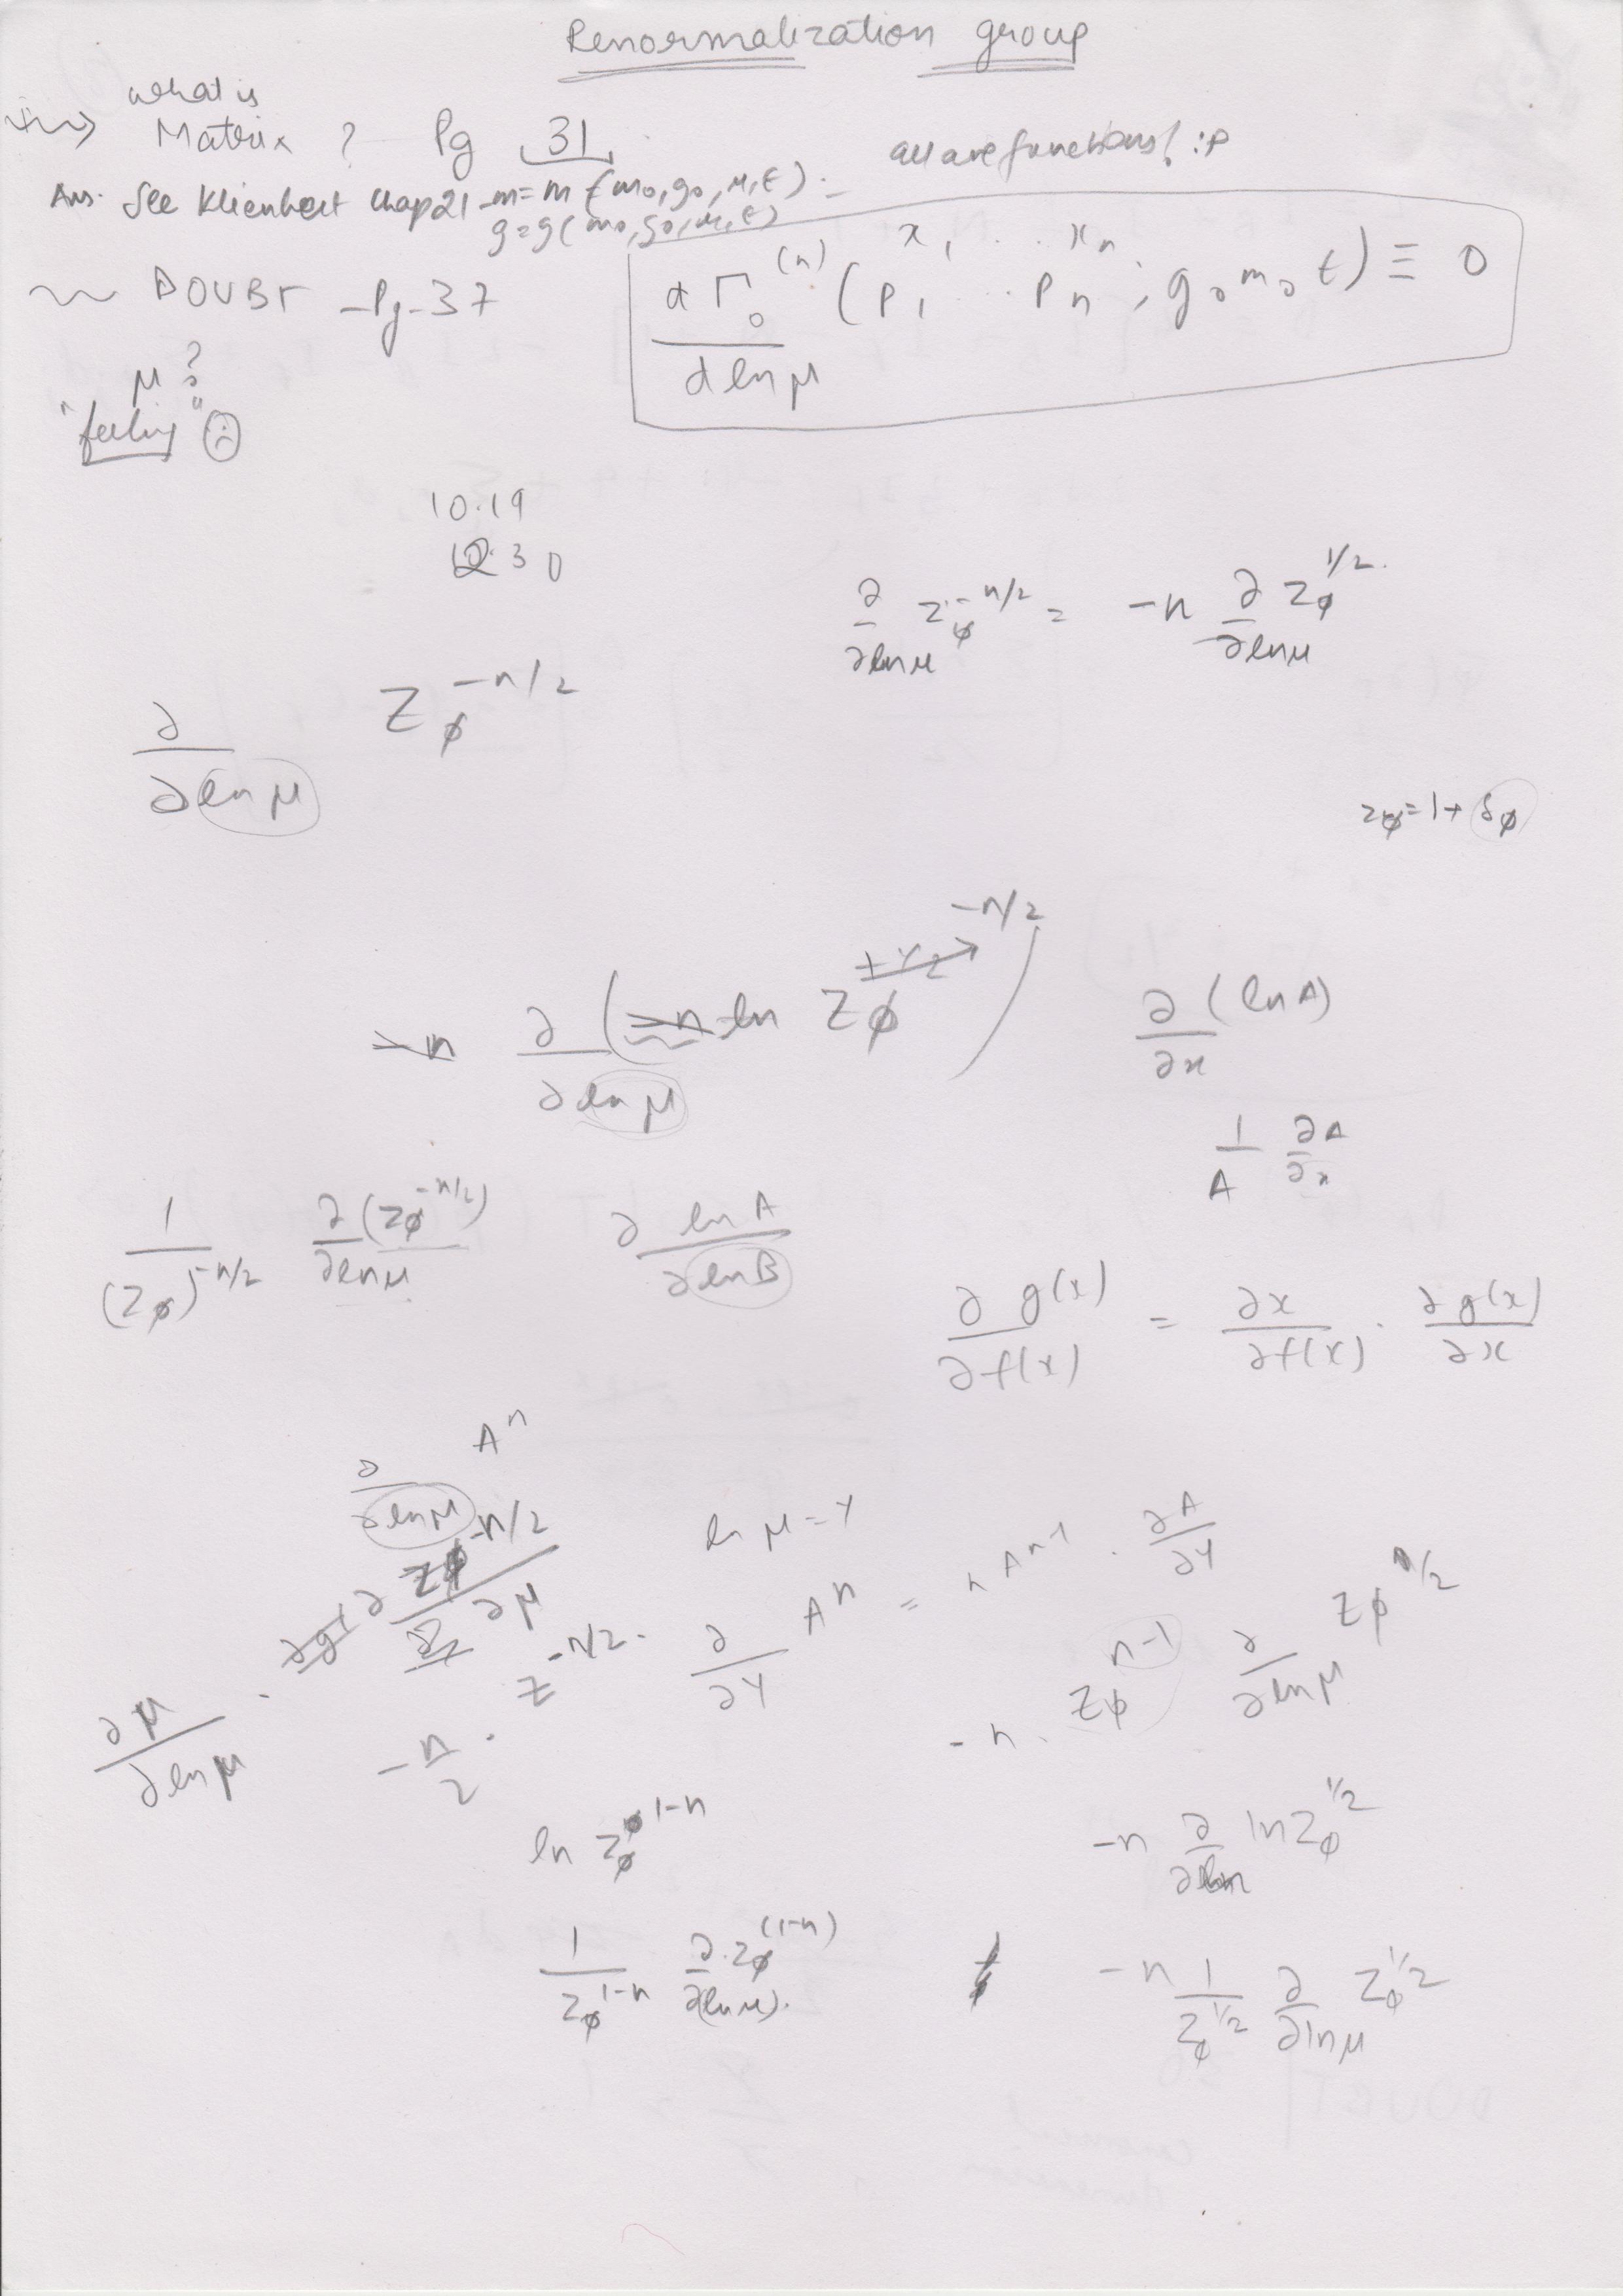 Renormalization group
what is
Matrix ? Pg 31
all are functions! :P
Ans. See Klienhert chap 21 m = m (m₀, g₀, μ, ε)
g = g (m₀, g₀, μ, ε)
DOUBT - Pg - 37
x₁ ... xₙ
d Γ₀^(n) (p₁ ... pₙ ; g₀ m₀ ε) ≡ 0
d ln μ
μ ?
"feeling" ☹
10.19
30
∂/∂ln μ Z_φ^{-n/2} = -n ∂/∂ln μ Z_φ^{1/2}
∂/∂ln μ Z_φ^{-n/2}
Z_φ = 1 + δ_φ
∂/∂ln μ ( ln Z_φ^{-n/2} )
∂/∂x (ln A)
1/A ∂A/∂x
1/(Z_φ)^{-n/2} ∂(Z_φ^{-n/2})/∂ln μ
∂ ln A/∂ ln B
∂ g(x)/∂ f(x) = ∂x/∂f(x) · ∂ g(x)/∂x
∂/∂ln μ A^n
ln μ = Y
∂μ/∂ln μ · ∂ Z_φ^{-n/2}/∂μ
-n/2 · Z^{-n/2 -
∂/∂Y A^n = n A^{n-1} · ∂A/∂Y
-n · Z_φ^{n-1} ∂/∂ln μ Z_φ^{1/2}
ln Z_φ^{1-n}
-n ∂/∂ln ln Z_φ^{1/2}
1/Z_φ^{1-n} ∂ · Z_φ^{(1-n)}/∂(ln μ).
-n 1/Z_φ^{1/2} ∂/∂ln μ Z_φ^{1/2}